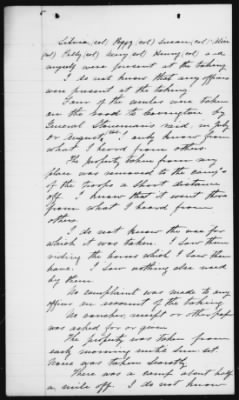 Silvia (col) Peggy (col) Susan (col) Alice
(col) Patty (col) Amy (col) Henry (col) and
myself were present at the taking.
I do not know that any officers
were present at the taking.
Four of the mules were taken
on the road to Covington by
General Stoneman's raid, in July
or August, I only know from
what I heard from others.
The property taken from my
place was removed to the camps
of the troops a short distance
off. I know that it went there
from what I heard from
others.
I do not know the use for
which it was taken. I saw them
riding the horses which I saw them
have. I saw nothing else used
by them.
No complaint was made to any
officer on account of the taking
No voucher, receipt or other paper
was asked for or given.
The property was taken from
early morning until sun set.
None was taken secretly.
There was a camp about half
a mile off. I do not know